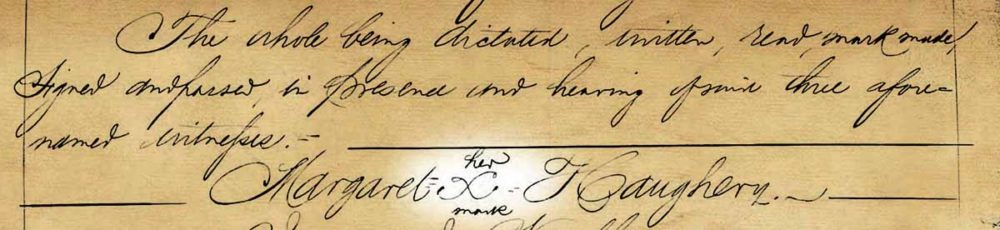 The whole being dictated, written, read, mark made,
signed and passed, in presence and hearing of said three afore=
named witnesses.-
her
Margaret= X - Haughery.
mark